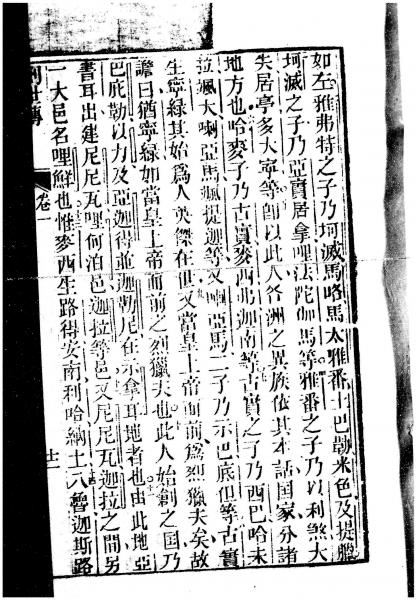 如左雅弗特之子乃坷滅馬咯馬太雅番土巴勒米色及提臘
坷滅之子乃亞實居拿哩法陀伽馬等雅番之子乃以利煞大
失居亭多大寧等卽以此人各洲之異族依其本話国家分諸
地方也哈麥子乃古實麥西弗迦南等古實之子乃西巴哈未
拉颯大喇亞馬颯提迦等又喇亞馬二子乃示巴底但等古實
生寧綠其始爲人英傑在世又當皇上帝面前爲烈獵夫矣故
諺曰猶寧綠如當皇上帝面前之烈獵夫也此人始創之国乃
巴庇勒以力及亞迦得並迦勒尼在示拿耳地者也由此地亞
書耳出建尼尼瓦哩何泊邑迦拉等邑又尼尼瓦迦拉之間另
一大邑名哩鮮也惟麥西生路得安南利哈納土八魯迦斯路
世傳 卷一